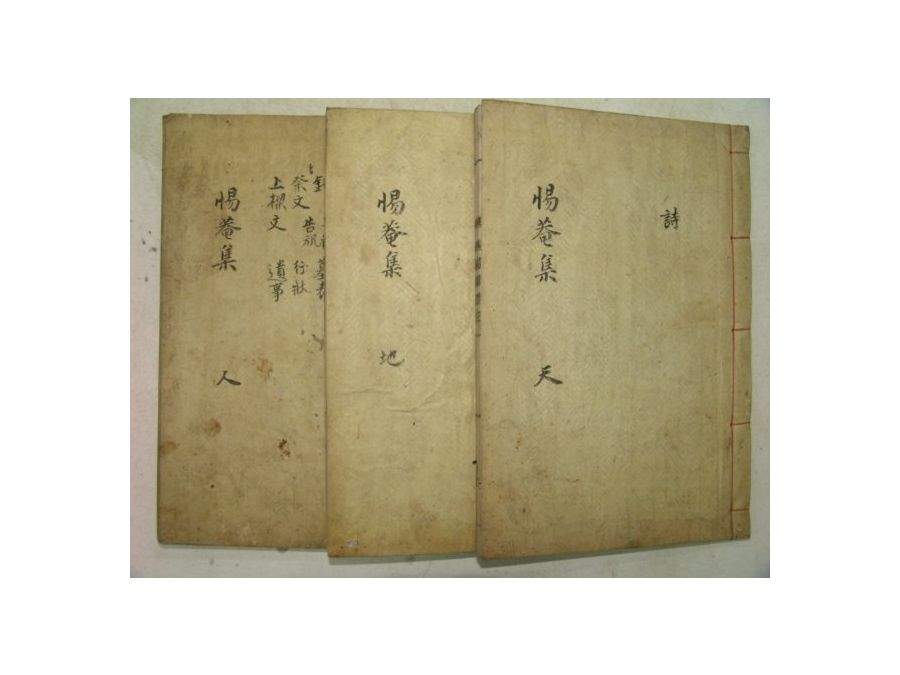 詩
惕菴集 天
惕菴集 地
墓表
祭文 告祝 行狀
上樑文 遺事
惕菴集 人